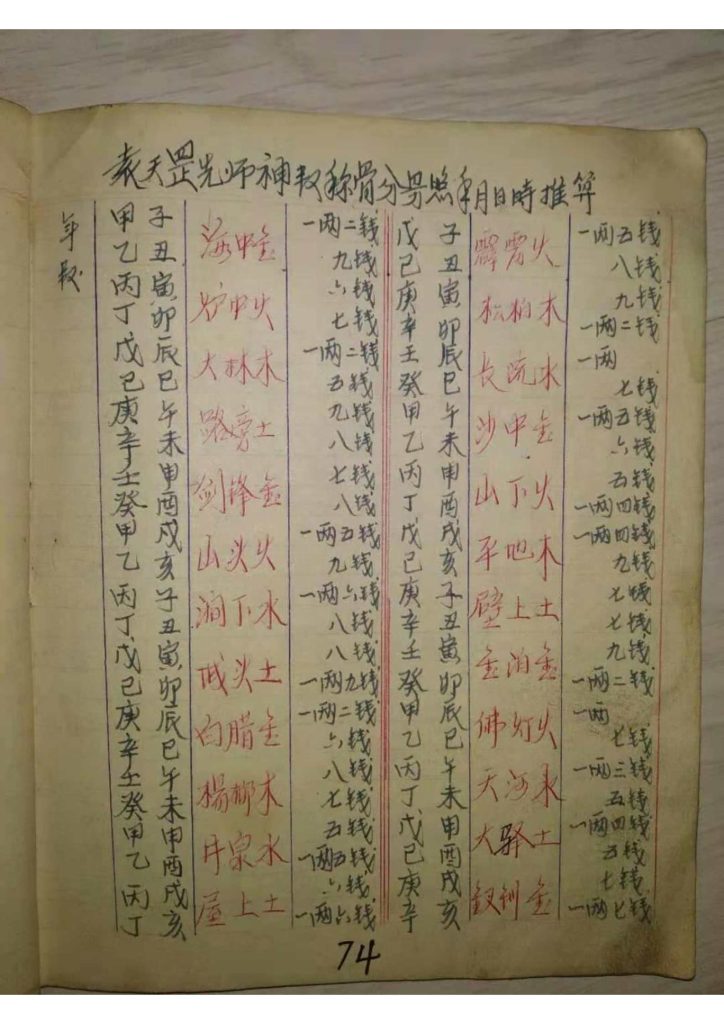 袁天罡先师神数称骨分另照年月日時推算
年数
甲子 海中金 一两二钱 戊子 霹雷火 一两五钱
乙丑 九钱 己丑 八钱
丙寅 炉中火 六钱 庚寅 松柏木 九钱
丁卯 七钱 辛卯 一两二钱
戊辰 大林木 一两二钱 壬辰 长流水 一两
己巳 五钱 癸巳 七钱
庚午 路旁土 九钱 甲午 沙中金 一两五钱
辛未 八钱 乙未 六钱
壬申 剑锋金 七钱 丙申 山下火 五钱
癸酉 八钱 丁酉 一两四钱
甲戌 山头火 一两五钱 戊戌 平地木 一两四钱
乙亥 九钱 己亥 九钱
丙子 涧下水 一两六钱 庚子 壁上土 七钱
丁丑 八钱 辛丑 七钱
戊寅 城头土 八钱 壬寅 金泊金 九钱
己卯 一两九钱 癸卯 一两二钱
庚辰 白腊金 一两二钱 甲辰 佛灯火 一两
辛巳 六钱 乙巳 七钱
壬午 楊柳木 八钱 丙午 天河水 一两三钱
癸未 七钱 丁未 五钱
甲申 井泉水 五钱 戊申 大驿土 一两四钱
乙酉 一两五钱 己酉 五钱
丙戌 屋上土 六钱 庚戌 钗钏金 七钱
丁亥 一两六钱 辛亥 一两七钱
74